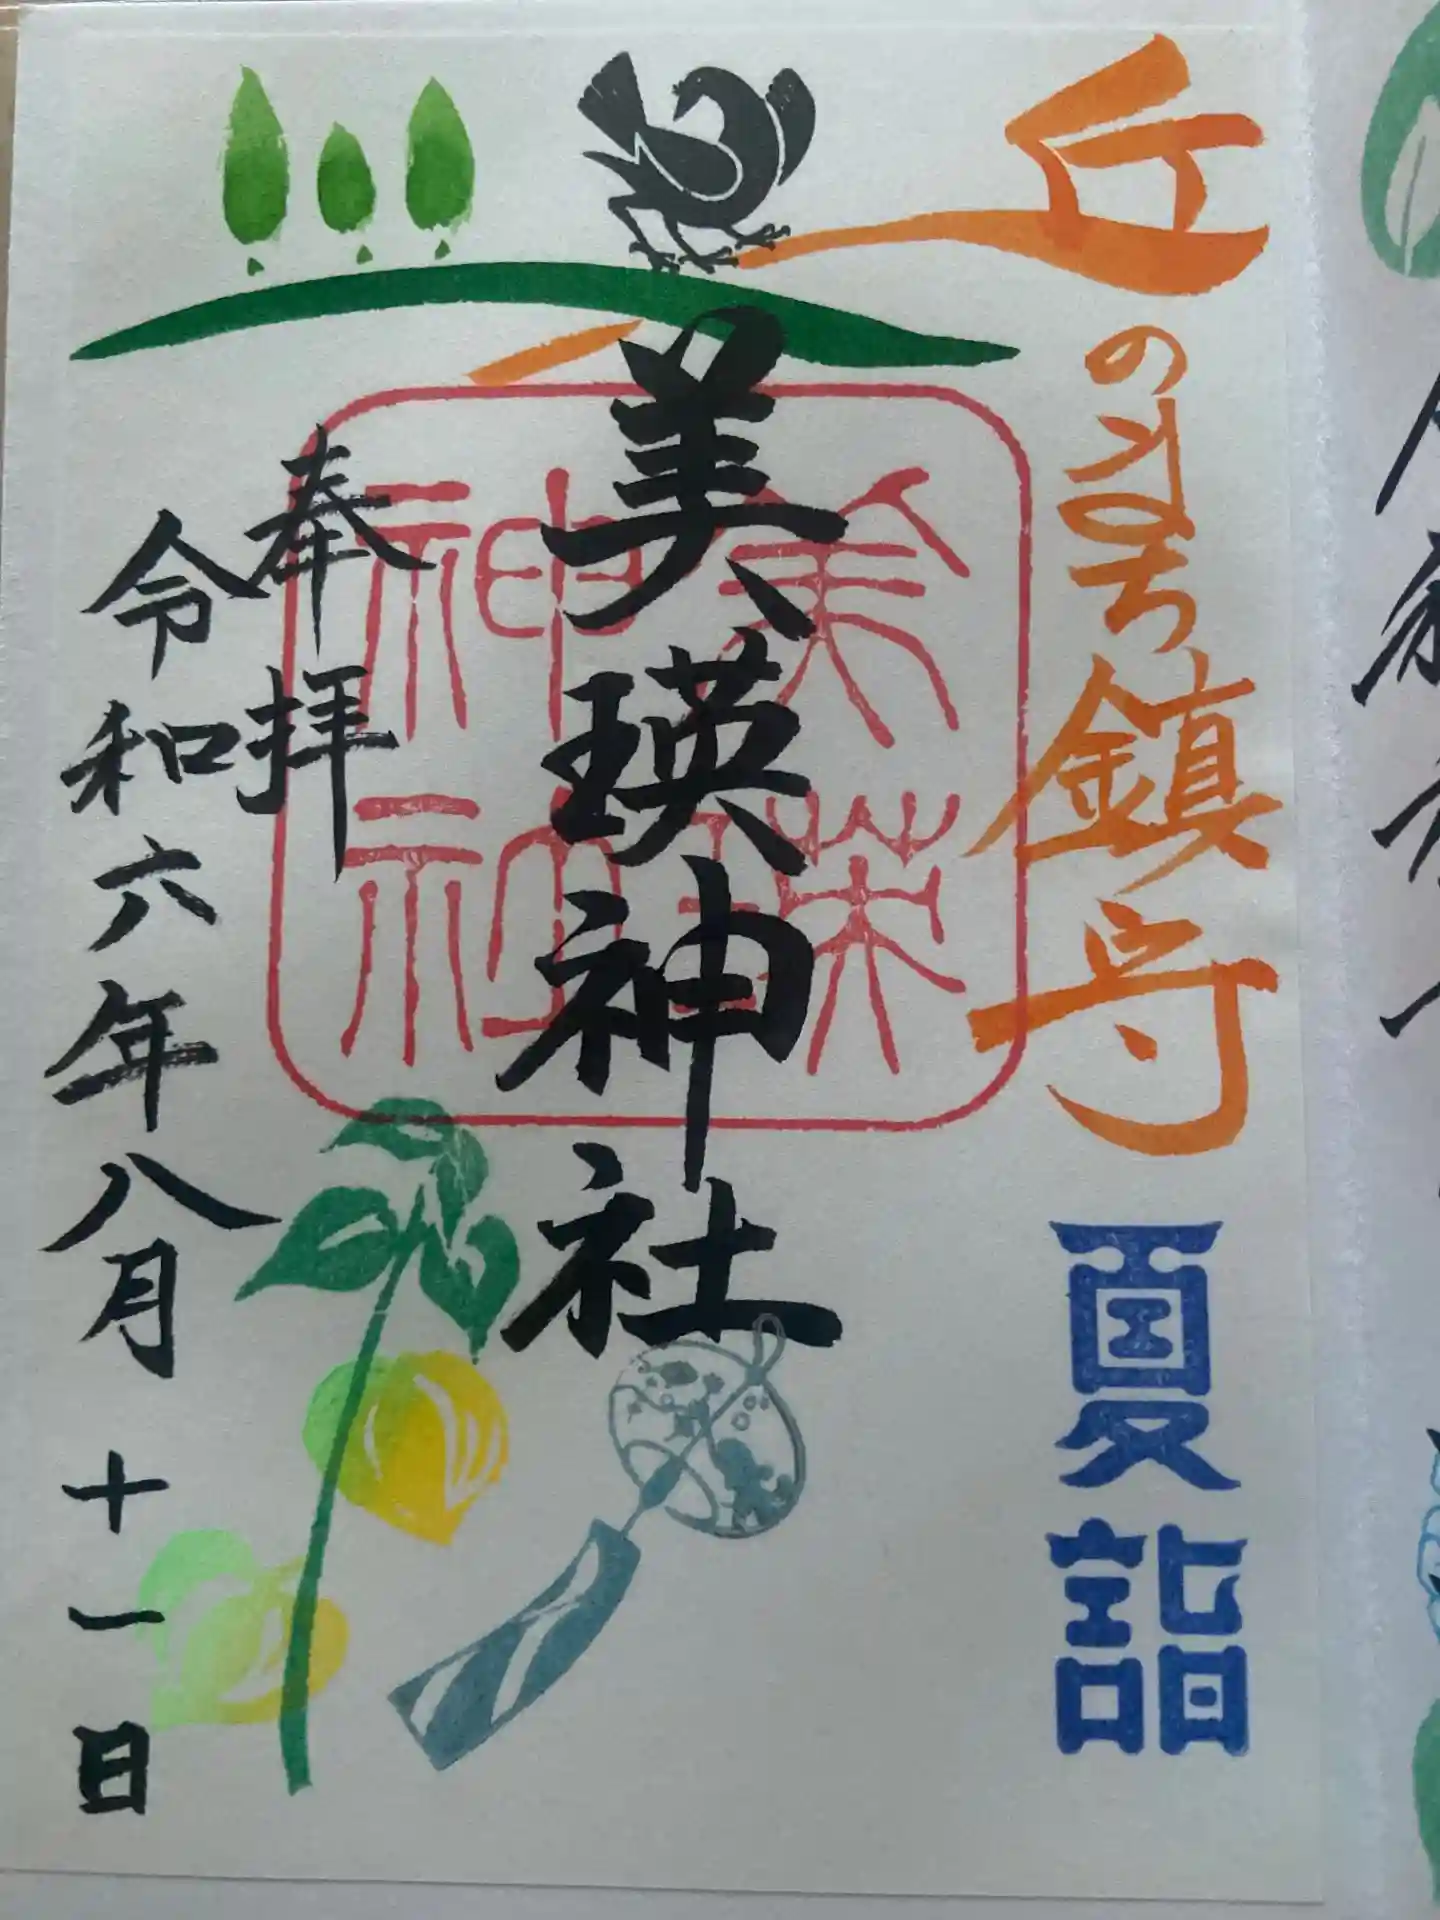 丘のまち鎮守
夏詣
美瑛神社
美瑛神社
奉拝
令和六年八月十一日